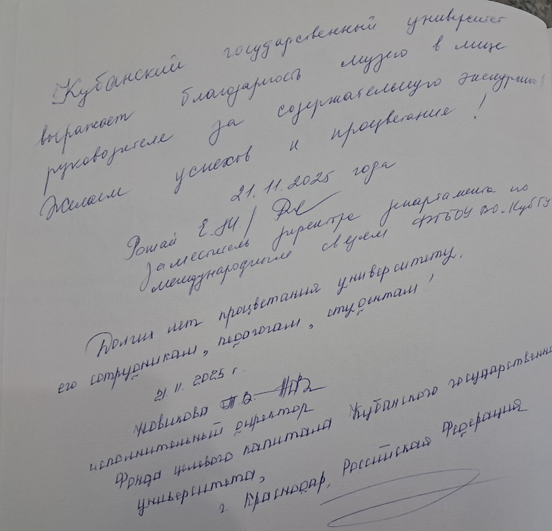 Кубанский государственный университет
выражает благодарность музею в лице
руководителя за содержательную экскурсию!
Желаем успехов и процветание!
21.11.2025 года
Рошай Е.
Заместитель директора департамента по
международным связям ФГБОУ ВО "КубГУ"
Долгих лет процветания университету,
его сотрудникам, педагогам, студентам!
21.11.2025 г.
Новикова
исполнительный директор
Фонда целевого капитала Кубанского государственного
университета,
г. Краснодар, Российская Федерация